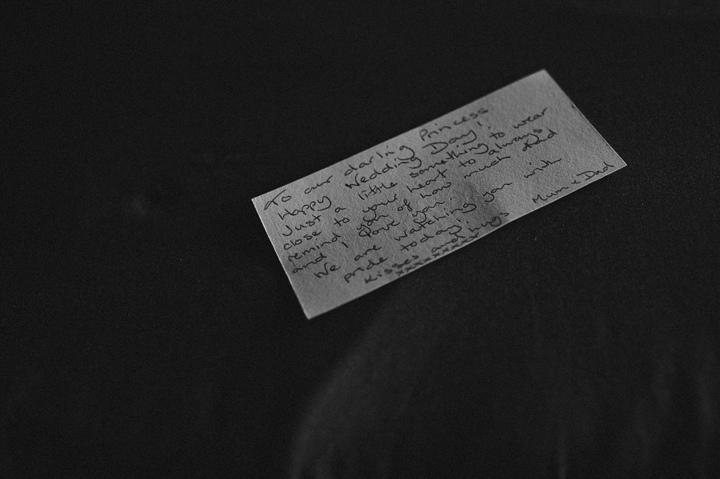 To our darling Princess
Happy Wedding Day!
Just a little something to wear
close to your heart to always
remind you of how much dad
and I love you!
We are watching you with
pride today!
Kisses and hugs
Mum & Dad
xxxxxxxxx